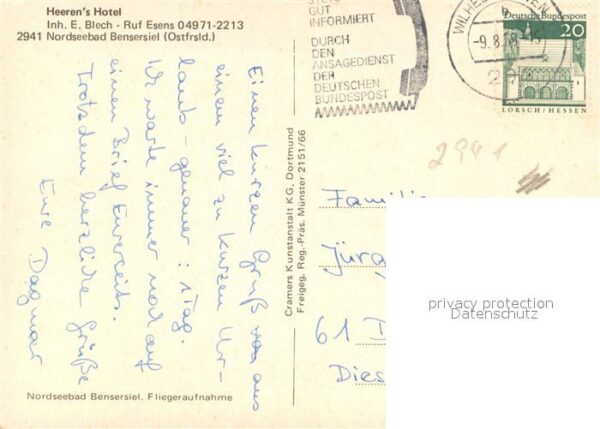 Heeren's Hotel
Inh. E. Blech - Ruf Esens 04971-2213
2941 Nordseebad Bensersiel (Ostfrsld.)
Einen kurzen Gruß von aus
einem viel zu kurzen Ur-
laub - genauer: 1 Tag.
Ich warte immer noch auf
einen Brief Eurerseits.
Trotzdem herzliche Grüße
Eure Dagmar
Nordseebad Bensersiel, Fliegeraufnahme
Cramers Kunstanstalt KG, Dortmund
Freigeg. Reg.-Präs. Münster 2151/66
GUT
INFORMIERT
DURCH
DEN
ANSAGEDIENST
DER
DEUTSCHEN
BUNDESPOST
-9.8.68
Deutsche Bundespost
20
LORSCH/HESSEN
2941
Familie
Jürg
61 D
Dies
privacy protection
Datenschutz